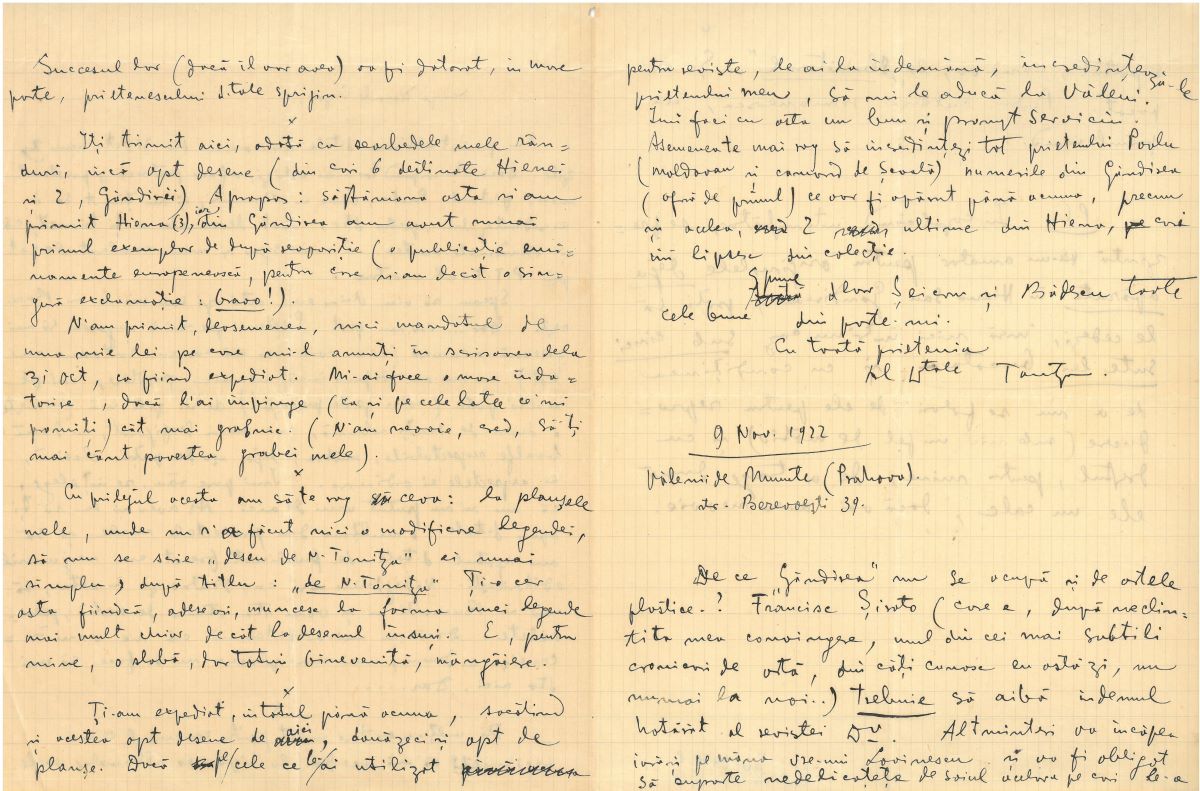 Succesul lor (dacă îl vor avea) va fi datorat, în mare
parte, prietenescului d-tale sprijin.
x
Iți trimit aici, odată cu searbedele mele rân=
duri, încă opt desene (din cari 6 destinate Hienei
și 2, Gândirei) Apropos: săptămâna asta n'am
primit Hiena (3), iar din Gândirea am avut numai
primul exemplar de după reapariție (o publicație emi=
namente europenească, pentru care n'am decât o sin=
gură exclamație: bravo!).
N'am primit, deasemenea, nici mandatul de
una mie lei pe care mi-l anunți în scrisoarea dela
31 Oct, ca fiind expediat. Mi-ai face o mare înda=
torire, dacă l'ai împinge (ca și pe celelalte ce-mi
promiți) cât mai grabnic. (N'am nevoie, cred, să-ți
mai cânt povestea grabei mele).
x
Cu prilejul acesta am să te rog ceva: la planșele
mele, unde nu s'a făcut nici o modificare legendei,
să nu se scrie „desen de N. Tonitza" ci numai
simplu, după titlu: „de N. Tonitza" Ți-o cer
asta fiindcă, adeseori, muncesc la forma unei legende
mai mult chiar decât la desenul însuși. E, pentru
mine, o slabă, dar totuși binevenită, mângâiere.
x
Ți-am expediat, in totul până acuma, socotind
și acestea opt desene de aici, douăzeci și opt de
planșe. Dacă pe cele ce le-ai utilizat
pentru reviste, le ai la îndemână, încredințează-le
prietenului meu, să mi le aducă la Văleni.
Imi faci cu asta un bun și prompt serviciu.
Asemenea te mai rog să incredințezi tot prietenului Pavlu
(moldovan și camarad de școală) numerile din Gândirea
(afară de primul) ce vor fi apărut până acuma, precum
și acelea, 2 ultime din Hiena, cari
îmi lipsesc din colecție.
Spune d-lor Șeicaru și Bădescu toate
cele bune din parte-mi.
Cu toată prietenia
Al D-tale Tonitza.
9 Nov. 1922
Vălenii de Munte (Prahova).
str. Berevoești 39.
De ce „Gândirea" nu se ocupă și de artele
plastice.? Francisc Șirato (care e, după neclin=
tita mea convingere, unul din cei mai subtili
cronicari de artă, din câți cunosc eu astăzi, nu
numai la noi..) trebuie să aibă îndemnul
hotărât al revistei Dv. Altminteri va încăpea
iarăși pe mâna vre-unui Lovinescu și va fi obligat
să suporte nedelicatețe de soiul acelora pe cari le-a